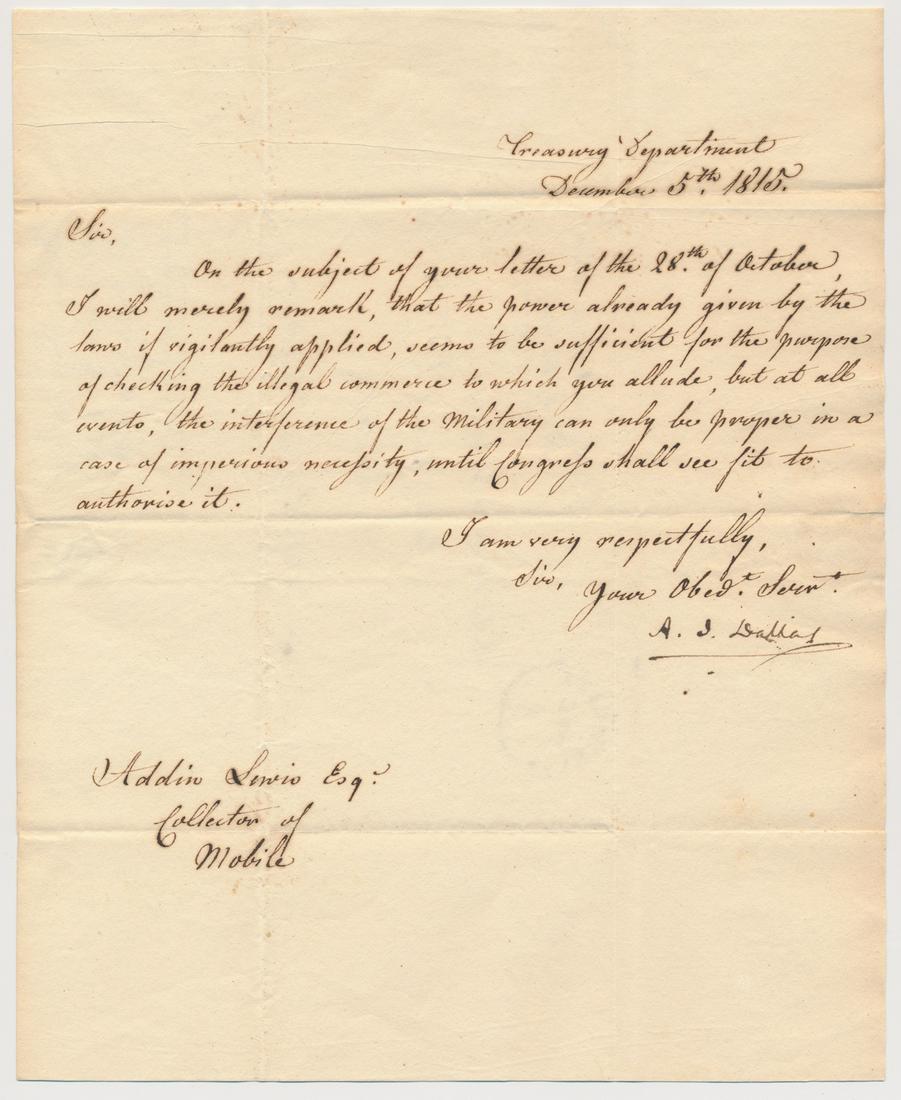 Treasury Department
December 5th. 1815.
Sir,
On the subject of your letter of the 28th. of October,
I will merely remark, that the power already given by the
laws if vigilantly applied, seems to be sufficient for the purpose
of checking the illegal commerce to which you allude, but at all
events, the interference of the Military can only be proper in a
case of imperious necessity, until Congress shall see fit to
authorise it.
I am very respectfully,
Sir,
Your Obedt. Servt.
A. J. Dallas
Addin Lewis Esqr.
Collector of
Mobile